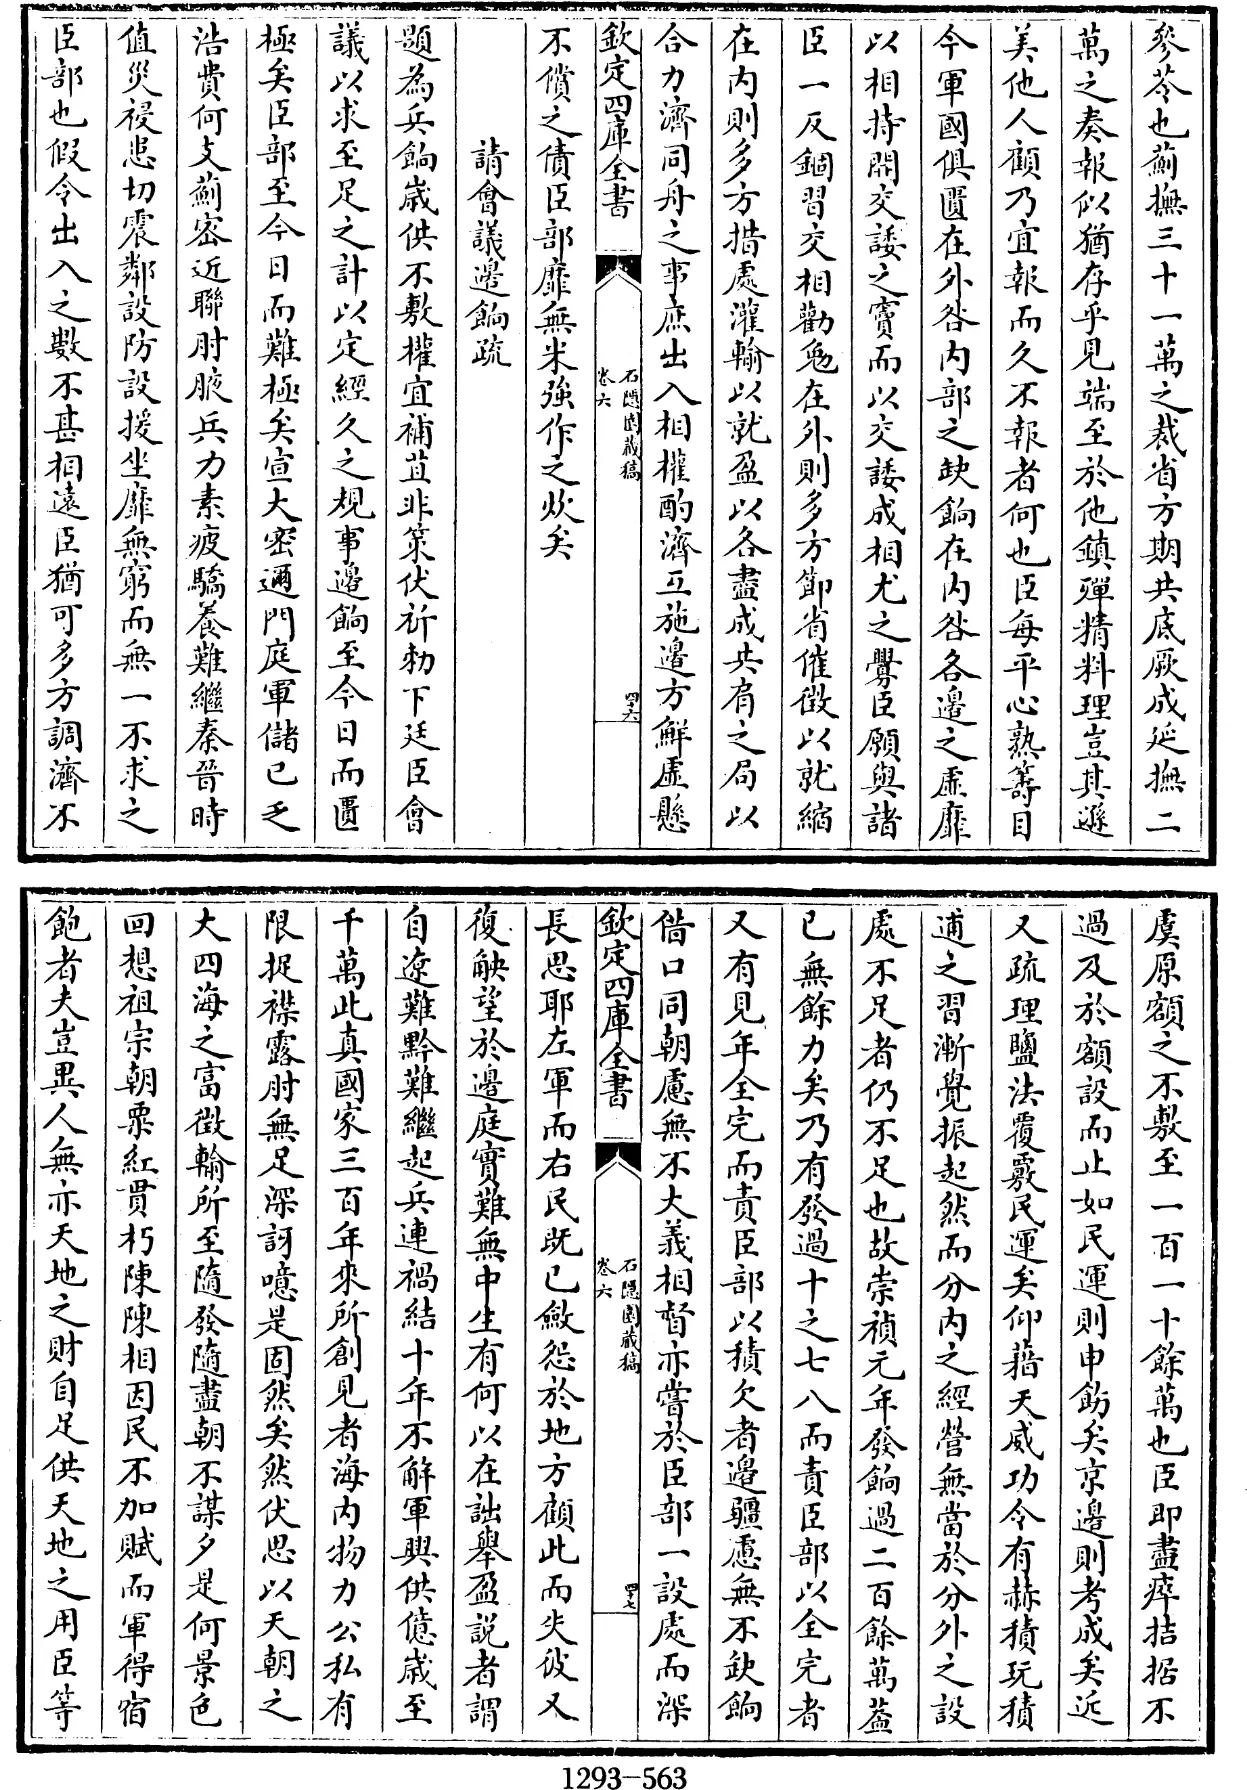 參苓也薊撫三十一萬之裁省方期共底厥成延撫二
萬之奏報似猶存乎見端至於他鎮殫精料理豈其遜
美他人顧乃宜報而久不報者何也臣每平心熟籌目
今軍國俱匱在外咎內部之缺餉在內咎各邊之虛靡
以相持開交諉之竇而以交諉成相尤之釁臣願與諸
臣一反錮習交相勸勉在外則多方節省催徵以就縮
在內則多方措處灌輸以就盈以各盡成共肩之局以
合力濟同舟之事庶出入相權酌濟互施邊方鮮虛懸
欽定四庫全書
石隱園藏稿
卷六
四十六
不償之債臣部靡無米強作之炊矣
請會議邊餉疏
題為兵餉歲供不敷權宜補苴非策伏祈勅下廷臣會
議以求至足之計以定經久之規事邊餉至今日而匱
極矣臣部至今日而難極矣宣大密邇門庭軍儲已乏
浩費何支薊密近聯肘腋兵力素疲驕養難繼秦晉時
值災祲患切震鄰設防設援坐靡無窮而無一不求之
臣部也假令出入之數不甚相遠臣猶可多方調濟不
虞原額之不敷至一百一十餘萬也臣即盡瘁拮据不
過及於額設而止如民運則申飭矣京邊則考成矣近
又疏理鹽法覆覈民運矣仰藉天威功令有赫積玩積
逋之習漸覺振起然而分內之經營無當於分外之設
處不足者仍不足也故崇禎元年發餉過二百餘萬蓋
已無餘力矣乃有發過十之七八而責臣部以全完者
又有見年全完而責臣部以積欠者邊疆慮無不缺餉
借口同朝慮無不大義相督亦嘗於臣部一設處而深
欽定四庫全書
石隱園藏稿
卷六
四十七
長思耶左軍而右民既已斂怨於地方顧此而失彼又
復觖望於邊庭實難無中生有何以在詘舉盈說者謂
自遼難黔難繼起兵連禍結十年不解軍興供億歲至
千萬此真國家三百年來所創見者海內物力公私有
限捉襟露肘無足深訝噫是固然矣然伏思以天朝之
大四海之富徵輸所至隨發隨盡朝不謀夕是何景色
回想祖宗朝粟紅貫朽陳陳相因民不加賦而軍得宿
飽者夫豈異人無亦天地之財自足供天地之用臣等
1293-563